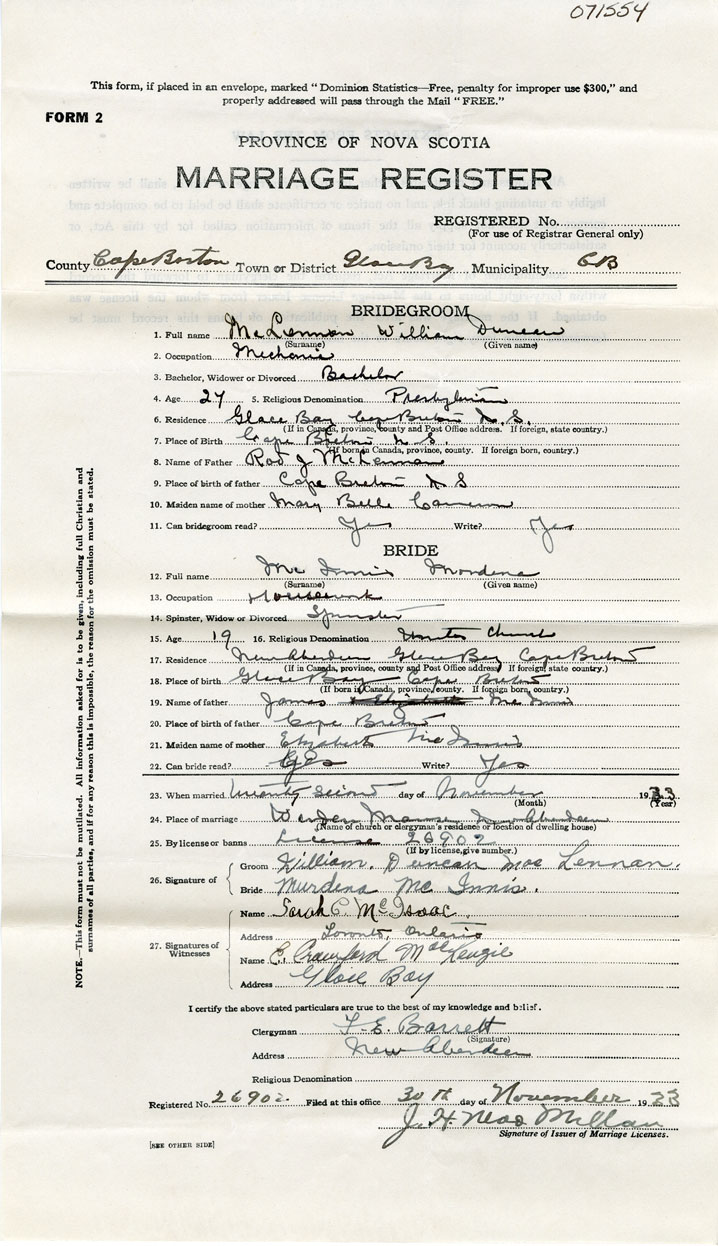 071554
This form, if placed in an envelope, marked "Dominion Statistics—Free, penalty for improper use $300," and
properly addressed will pass through the Mail "FREE."
FORM 2
PROVINCE OF NOVA SCOTIA
MARRIAGE REGISTER
REGISTERED No.
(For use of Registrar General only)
County Cape Breton Town or District Glace Bay Municipality CB
BRIDEGROOM
1. Full name McLennan William Duncan
(Surname) (Given name)
2. Occupation Mechanic
3. Bachelor, Widower or Divorced Bachelor
4. Age 27 5. Religious Denomination Presbyterian
6. Residence Glace Bay Cape Breton N.S.
(If in Canada, province, county and Post Office address. If foreign, state country.)
7. Place of Birth Cape Breton N.S.
(If born in Canada, province, county. If foreign born, country.)
8. Name of Father Rod J McLennan
9. Place of birth of father Cape Breton N S
10. Maiden name of mother Mary Belle Cameron
11. Can bridegroom read? Yes Write? Yes
BRIDE
12. Full name Mc Innis Murdena
(Surname) (Given name)
13. Occupation Housework
14. Spinster, Widow or Divorced Spinster
15. Age 19 16. Religious Denomination United Church
17. Residence New Aberdeen Glace Bay Cape Breton
(If in Canada, province, county and Post Office address. If foreign, state country.)
18. Place of birth Glace Bay Cape Breton
(If born in Canada, province, county. If foreign born, country.)
19. Name of father James Mc Innis
20. Place of birth of father Cape Breton
21. Maiden name of mother Elizabeth Mc Innis
22. Can bride read? Yes Write? Yes
23. When married twenty second day of November 1933
(Month) (Year)
24. Place of marriage Manse New Aberdeen
(Name of church or clergyman's residence or location of dwelling house)
25. By license or banns License 26902
(If by license, give number.)
26. Signature of
Groom William Duncan Mac Lennan.
Bride Murdena Mc Innis.
27. Signatures of Witnesses
Name Sarah C. McIsaac
Address Toronto, Ontario
Name C. Crawford MacKenzie
Address Glace Bay
I certify the above stated particulars are true to the best of my knowledge and belief.
Clergyman F. E. Barrett
(Signature)
Address New Aberdeen
Religious Denomination
Registered No. 26902. Filed at this office 30th day of November 1933
J. H. MacMillan
Signature of Issuer of Marriage Licenses.
[SEE OTHER SIDE]
NOTE.—This form must not be mutilated. All information asked for is to be given, including full Christian and
surnames of all parties, and if for any reason this is impossible, the reason for the omission must be stated.